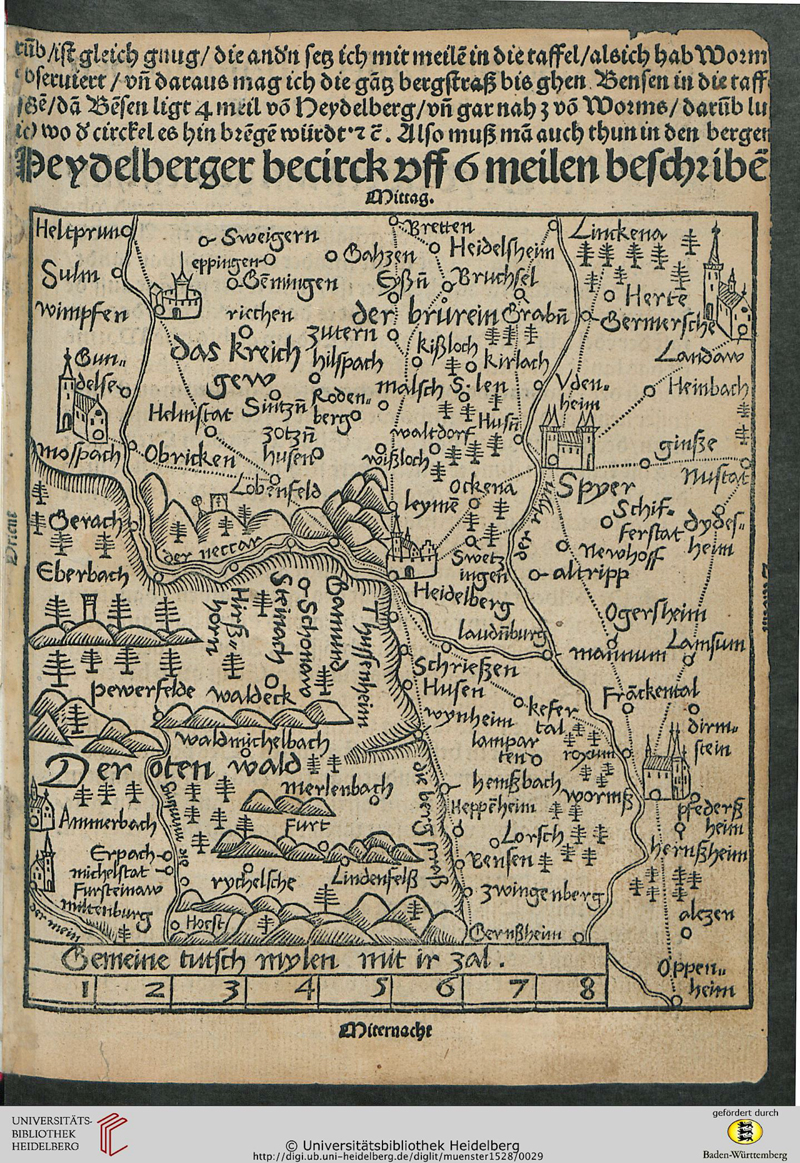 rūb/ist gleich gnug/ die and'n setz ich mit meilē in die taffel/als ich hab Worm
observiert / vn̄ daraus mag ich die gātz bergstraß bis ghen Bensen in die taff
setzē/dā Bēsen ligt 4 meil vō Heydelberg/vn̄ gar nah 3 vō Worms/ darūb lu
ich wo d' circkel es hin brēgē würdt ⁊ c̄. Also muß mā auch thun in den bergen
Heydelberger becirck vff 6 meilen beschribē
Mittag.
Heltprun
Sweigern
Bretten
Linckena
Heidelsheim
eppingen
Gahzen
Sulm
Gemingen
Bruchsel
Herte
wimpfen
riechen
der brurein
Grabn̄
Germersche
zutern
das kreich
gew
hilspach
kißloch
kirlach
Landaw
Gundelse
malsch
S. len
Vdenheim
Heinbach
Helmstat
Sintzn̄
Rodenberg
Husn̄
zotzn̄
husen
waltdorf
ginße
mospach
Obricken
wißloch
Nustat
Lobenfeld
Ockena
Spyer
leymē
Gerach
Schifferstat
dydesheim
der neccar
Swetzingen
Newhoff
Eberbach
altripp
Heidelberg
Hirßhorn
Steinach
Schonaw
Ogersheim
laudn̄burg
mannum
Lamsum
Schrießen
pewerfelde
waldeck
Husen
Fräckental
wynheim
kefertal
dirmstein
waldmichelbach
lamparten
roxum
Der oten wald
hemßbach
wormß
merlenbach
die bergstraß
pfederßheim
Ammerbach
Furt
Heppēheim
Lorsch
hernßheim
Erpach
Bensen
michelstat
rychelsche
Lindenfelß
Fursteinaw
zwingenberg
miltenburg
alczen
der mein
Horst
Gernßheim
Oppenheim
Gemeine tutsch mylen mit ir zal.
1 2 3 4 5 6 7 8
Miternacht
UNIVERSITÄTS-
BIBLIOTHEK
HEIDELBERG
© Universitätsbibliothek Heidelberg
http://digi.ub.uni-heidelberg.de/diglit/muenster1528/0029
gefördert durch
Baden-Württemberg